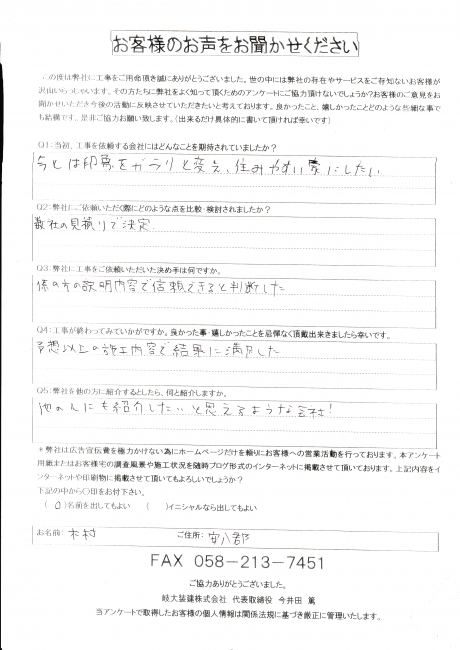 お客様のお声をお聞かせください
この度は弊社に工事をご用命頂き誠にありがとうございました。世の中には弊社の存在やサービスをご存知ないお客様が
沢山いらっしゃいます。その方たちに弊社をよく知って頂くためのアンケートにご協力頂けないでしょうか?お客様のご意見をお
聞かせいただき今後の活動に反映させていただきたいと考えております。良かったこと、嬉しかったことどのような些細な事で
も結構です。是非ご協力お願い致します。(出来るだけ具体的に書いて頂ければ幸いです)
Q1:当初、工事を依頼する会社にはどんなことを期待されていましたか?
今とは印象をガラリと変え、住みやすい家にしたい
Q2:弊社にご依頼いただく際にどのような点を比較・検討されましたか?
数社の見積りで決定.
Q3:弊社に工事をご依頼いただいた決め手は何ですか。
係の方の説明内容で信頼できると判断した
Q4:工事が終わってみていかがですか。良かった事・嬉しかったことを忌憚なく頂戴出来きましたら幸いです。
予想以上の施工内容で結果に満足した
Q5:弊社を他の方に紹介するとしたら、何と紹介しますか。
他の人にも紹介したいと思えるような会社!
*弊社は広告宣伝費を極力かけない為にホームページだけを頼りにお客様への営業活動を行っております。本アンケート
用紙またはお客様宅の調査風景や施工状況を随時ブログ形式のインターネットに掲載させて頂いております。上記内容をイ
ンターネットや印刷物に掲載させて頂いてもよろしいでしょうか?
下記の中から〇印をお付下さい。
(○)名前を出してもよい ( )イニシャルなら出してもよい
お名前: 木村 ご住所: 安八郡
FAX 058-213-7451
ご協力ありがとうございました。
岐大装建株式会社 代表取締役 今井田 篤
当アンケートで取得したお客様の個人情報は関係法規に基づき厳正に管理いたします。